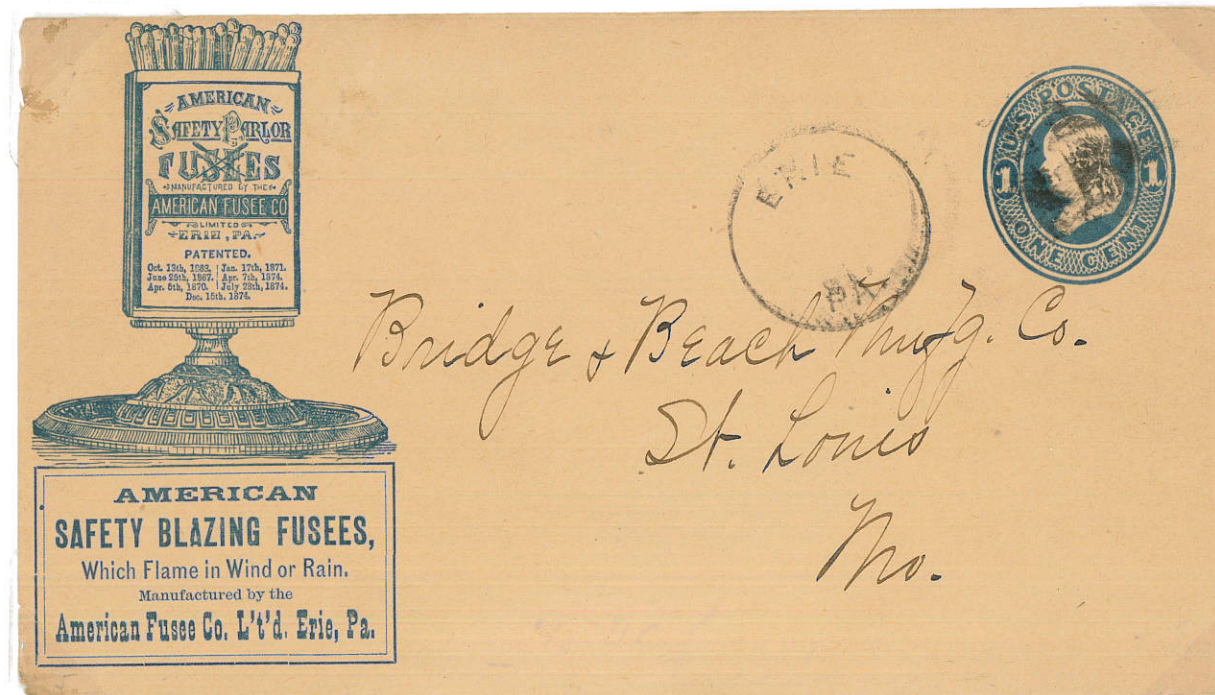 AMERICAN
SAFETY PARLOR
FUSEES
MANUFACTURED BY THE
AMERICAN FUSEE CO
LIMITED
ERIE, PA.
PATENTED.
Oct. 13th, 1863. Jan. 17th, 1871.
June 25th, 1867. Apr. 7th, 1874.
Apr. 5th, 1870. July 28th, 1874.
Dec. 15th, 1874.
AMERICAN
SAFETY BLAZING FUSEES,
Which Flame in Wind or Rain.
Manufactured by the
American Fusee Co. L't'd. Erie, Pa.
ERIE
PA.
U.S. POSTAGE
1 1
ONE CENT
Bridge & Beach Mnfg. Co.
St. Louis
Mo.